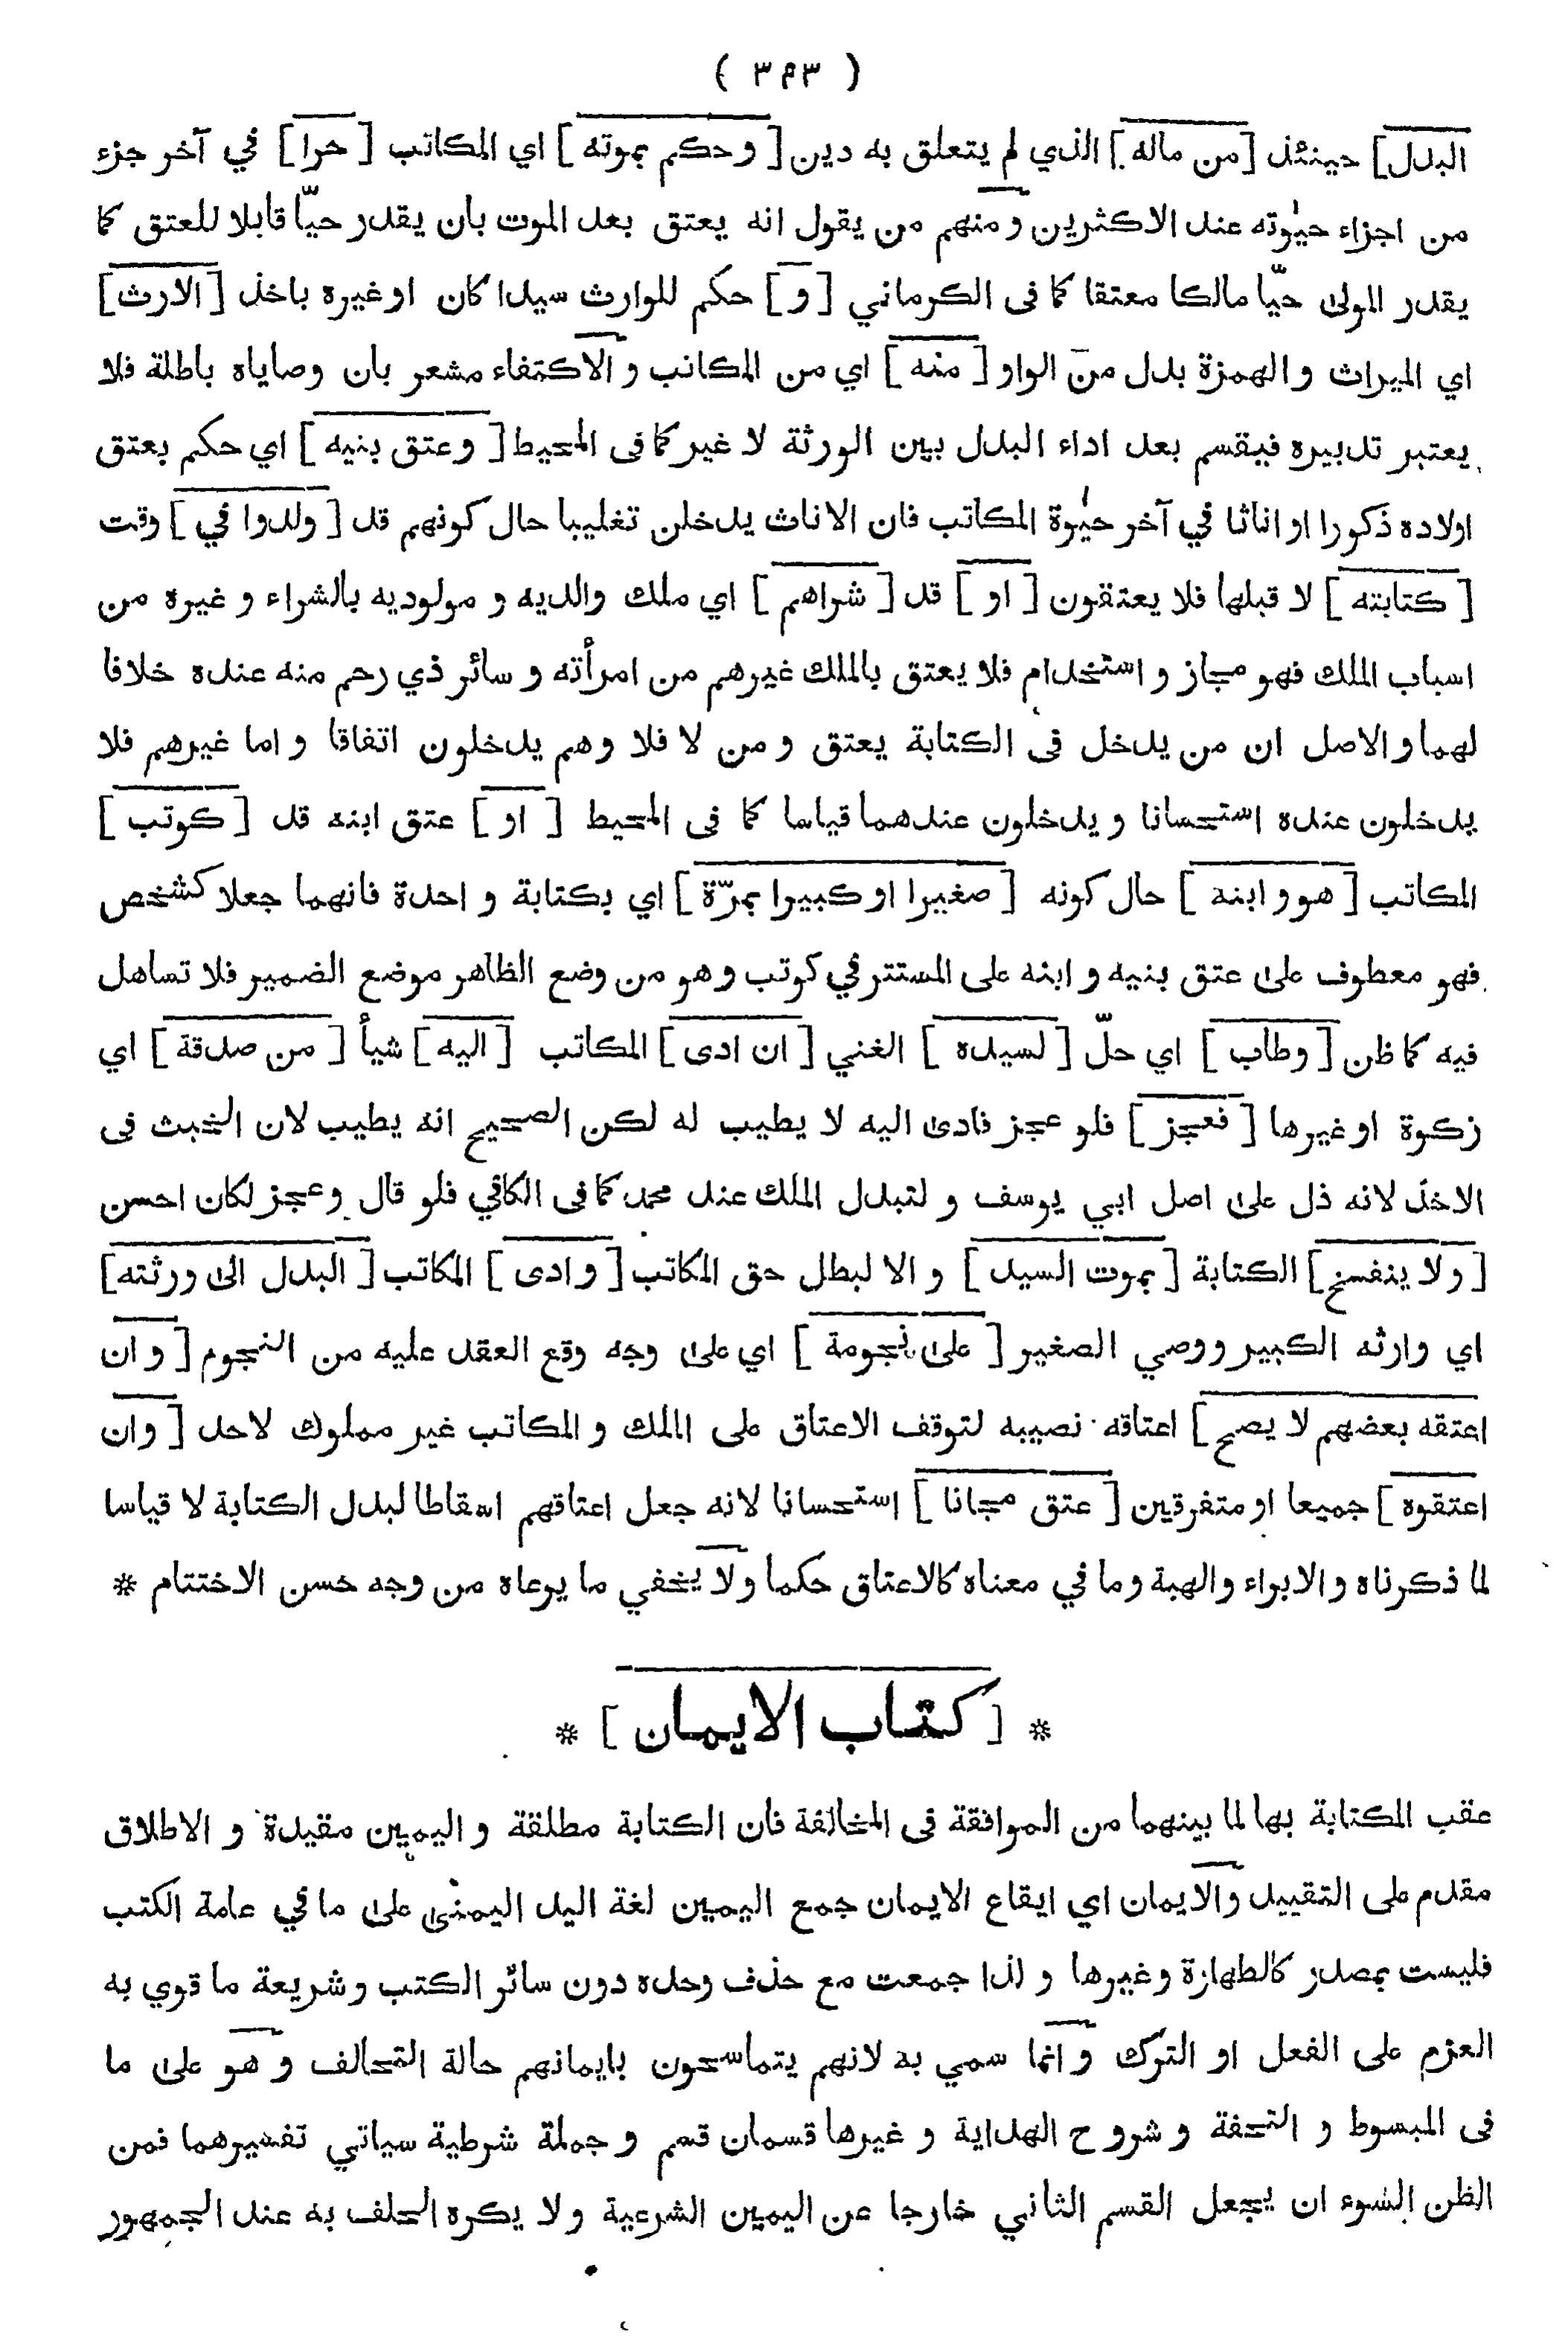 ( ٣٩٣ )
البدل] حينئذ [من ماله] الذي لم يتعلق به دين [وحكم بموته] اي المكاتب [حرا] في آخر جزء
من اجزاء حيٰوته عند الاكثرين ومنهم من يقول انه يعتق بعد الموت بان يقدر حيّا قابلا للعتق كما
يقدر المولى حيّا مالكا معتقا كما فى الكرماني [و] حكم للوارث سيدا كان اوغيره باخذ [الارث]
اي الميراث والهمزة بدل من الواو [منه] اي من المكاتب والاكتفاء مشعر بان وصاياه باطلة فلا
يعتبر تدبيره فيقسم بعد اداء البدل بين الورثة لا غير كما فى المحيط [وعتق بنيه] اي حكم بعتق
اولاده ذكورا او اناثا في آخر حيٰوة المكاتب فان الاناث يدخلن تغليبا حال كونهم قد [ولدوا في] وقت
[كتابته] لا قبلها فلا يعتقون [او] قد [شراهم] اي ملك والديه و مولوديه بالشراء و غيره من
اسباب الملك فهو مجاز و استخدام فلا يعتق بالملك غيرهم من امرأته و سائر ذي رحم منه عنده خلافا
لهما والاصل ان من يدخل فى الكتابة يعتق و من لا فلا وهم يدخلون اتفاقا و اما غيرهم فلا
يدخلون عنده استحسانا و يدخلون عندهما قياسا كما فى المحيط [او] عتق ابنه قد [كوتب]
المكاتب [هو و ابنه] حال كونه [صغيرا او كبيرا بمرّة] اي بكتابة و احدة فانهما جعلا كشخص
فهو معطوف على عتق بنيه و ابنه على المستتر في كوتب وهو من وضع الظاهر موضع الضمير فلا تساهل
فيه كما ظن [وطاب] اي حلّ [لسيده] الغني [ان ادى] المكاتب [اليه] شيأ [من صدقة] اي
زكوة او غيرها [فعجز] فلو عجز فادى اليه لا يطيب له لكن الصحيح انه يطيب لان الخبث فى
الاخذ لانه ذل على اصل ابي يوسف و لتبدل الملك عند محمد كما فى الكافي فلو قال وعجز لكان احسن
[ولا ينفسخ] الكتابة [بموت السيد] و الا لبطل حق المكاتب [وادى] المكاتب [البدل الى ورثته]
اي وارثه الكبير ووصي الصغير [على نجومة] اي على وجه وقع العقد عليه من النجوم [وان
اعتقه بعضهم لا يصح] اعتاقه نصيبه لتوقف الاعتاق على الملك و المكاتب غير مملوك لاحد [وان
اعتقوه] جميعا او متفرقين [عتق مجانا] استحسانا لانه جعل اعتاقهم اسقاطا لبدل الكتابة لا قياسا
لما ذكرناه والابراء والهبة وما في معناه كالاعتاق حكما ولا يخفي ما يرعاه من وجه حسن الاختتام *
* [كتاب الايمان] *
عقب المكتابة بها لما بينهما من الموافقة فى المخالفة فان الكتابة مطلقة و اليمين مقيدة و الاطلاق
مقدم على التقييد والايمان اي ايقاع الايمان جمع اليمين لغة اليد اليمنى على ما في عامة الكتب
فليست بمصدر كالطهارة وغيرها و لذا جمعت مع حذف وحده دون سائر الكتب وشريعة ما قوي به
العزم على الفعل او الترك و انما سمي به لانهم يتماسحون بايمانهم حالة التحالف و هو على ما
فى المبسوط و التحفة و شروح الهداية و غيرها قسمان قسم و جملة شرطية سياتي تفسيرهما فمن
الظن السوء ان يجعل القسم الثاني خارجا عن اليمين الشرعية ولا يكره الحلف به عند الجمهور